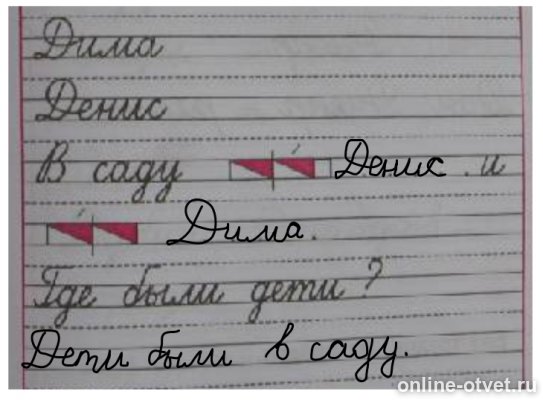 Дима
Денис
В саду Денис и
Дима.
Где были дети?
Дети были в саду.
online-otvet.ru